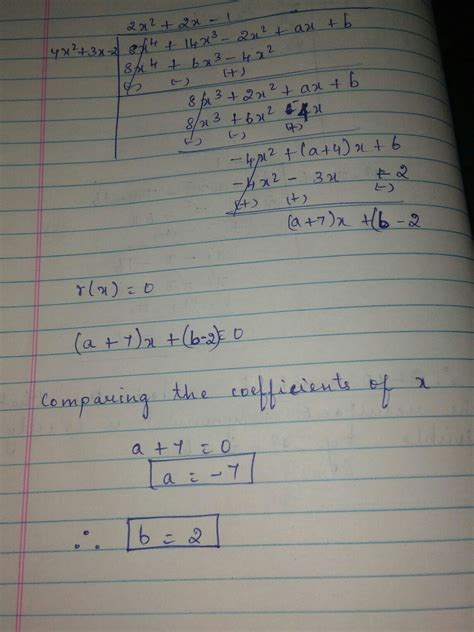 2x² + 2x - 1
4x²+3x-2 8x⁴ + 14x³ - 2x² + ax + b
8x⁴ + 6x³ - 4x²
(-) (-) (+)
8x³ + 2x² + ax + b
8x³ + 6x² - 4x
(-) (-) (+)
-4x² + (a+4)x + b
-4x² - 3x + 2
(+) (+) (-)
(a+7)x + (b-2
r(x) = 0
(a+7)x + (b-2) = 0
Comparing the coefficients of x
a + 7 = 0
a = -7
∴ b = 2